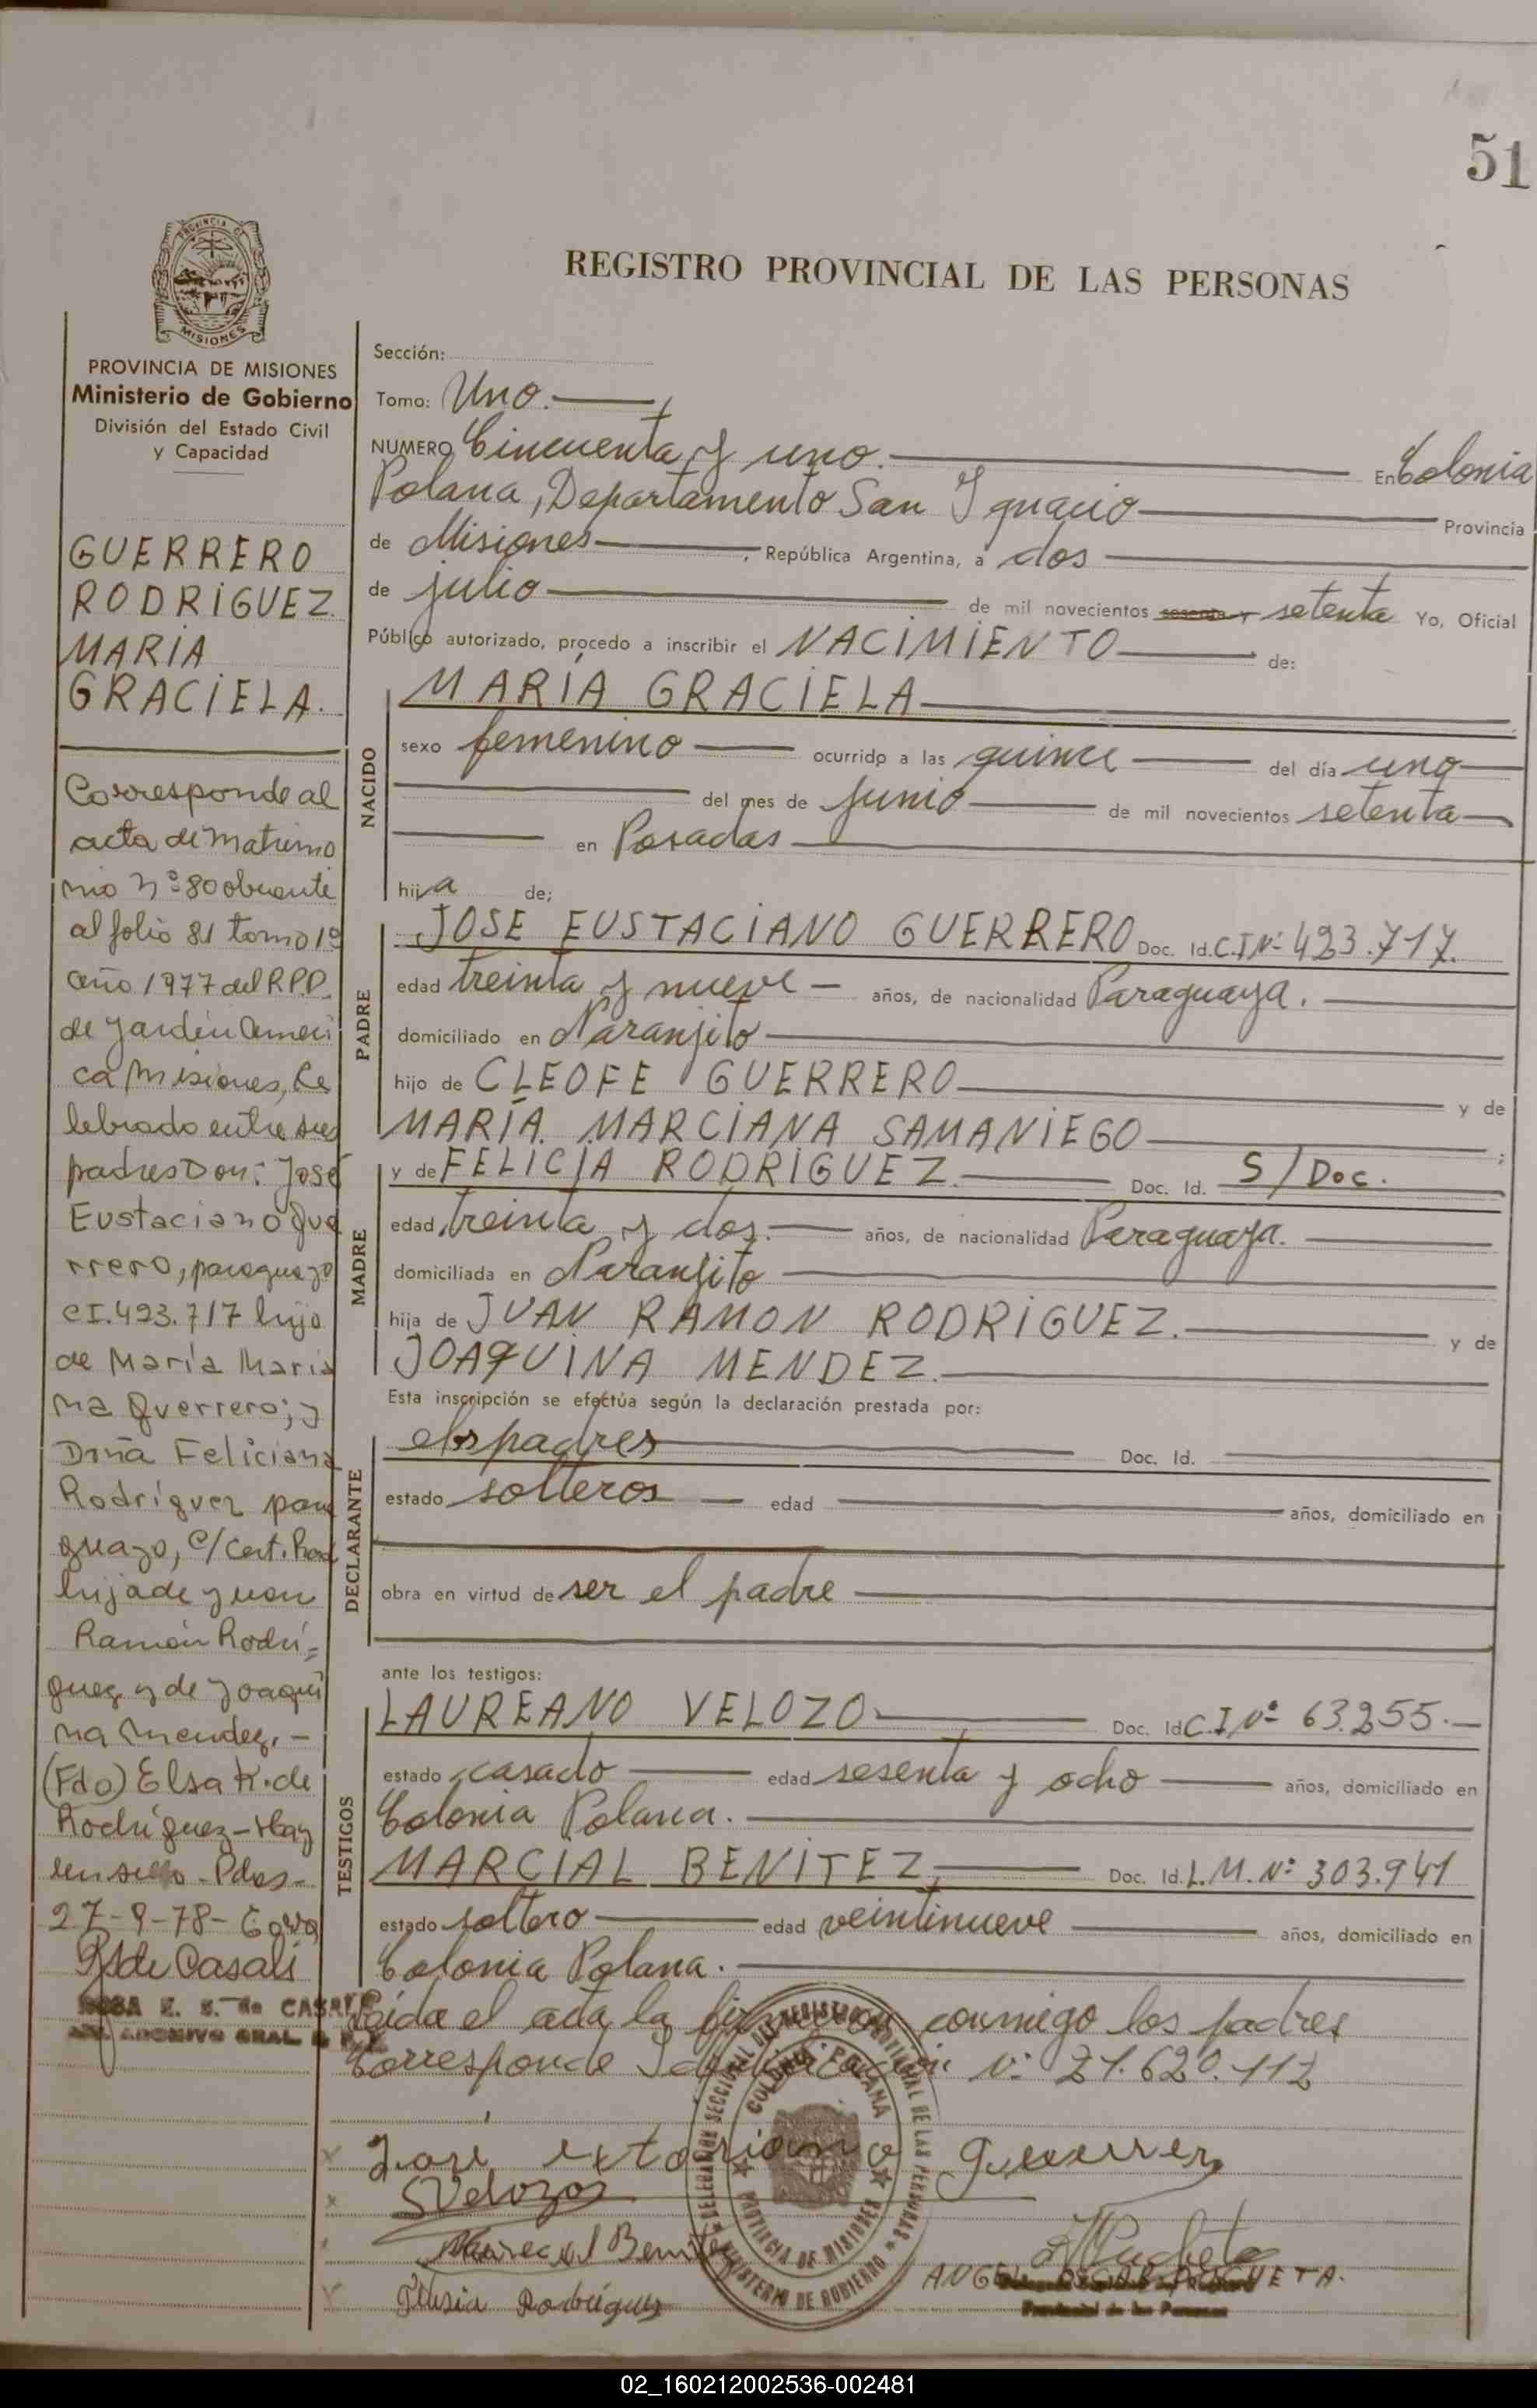 51
PROVINCIA DE
MISIONES
REGISTRO PROVINCIAL DE LAS PERSONAS
PROVINCIA DE MISIONES
Ministerio de Gobierno
División del Estado Civil
y Capacidad
GUERRERO
RODRIGUEZ.
MARIA
GRACIELA.
Corresponde al
acta de matrimo
nio nº 80 obrante
al folio 81 tomo 1º
año 1977 del R.P.P.
de Jardín Améri
ca Misiones, Ce
lebrado entre sus
padres Don: José
Eustaciano Gue
rrero, paraguayo
CI. 493.717 hijo
de María Marcia
na Guerrero; y
Doña Feliciana
Rodríguez para
guayo, c/ Cert. Rad
hija de Juan
Ramón Rodrí=
guez y de Joaqui
na Mendez. -
(Fdo) Elsa K. de
Rodríguez - Hay
un sello - Pdas -
27-9-78-
de Casali
ROSA E. S. de CASALI
ARCHIVO GRAL
Sección:
Tomo: Uno.
NUMERO Cincuenta y uno. En Colonia
Polana, Departamento San Ignacio Provincia
de Misiones, República Argentina, a dos
de julio de mil novecientos sesenta y setenta Yo, Oficial
Público autorizado, procedo a inscribir el NACIMIENTO de:
NACIDO
MARÍA GRACIELA
sexo femenino ocurrido a las quince del día uno
del mes de junio de mil novecientos setenta
en Posadas
hija de;
PADRE
JOSE EUSTACIANO GUERRERO Doc. Id. C.I Nº 493.717.
edad treinta y nueve años, de nacionalidad Paraguaya.
domiciliado en Naranjito
hijo de CLEOFE GUERRERO y de
MARÍA MARCIANA SAMANIEGO ;
MADRE
y de FELICIA RODRIGUEZ. Doc. Id. S/Doc.
edad treinta y dos. años, de nacionalidad Paraguaya.
domiciliada en Naranjito
hija de JUAN RAMON RODRIGUEZ. y de
JOAQUINA MENDEZ.
Esta inscripción se efectúa según la declaración prestada por:
DECLARANTE
los padres Doc. Id.
estado solteros edad años, domiciliado en
obra en virtud de ser el padre
ante los testigos:
TESTIGOS
LAUREANO VELOZO Doc. Id C.I Nº 63.255.
estado casado edad sesenta y ocho años, domiciliado en
Colonia Polana.
MARCIAL BENITEZ, Doc. Id. L.M. Nº 303.941
estado soltero edad veintinueve años, domiciliado en
Colonia Polana.
Leída el acta la firman conmigo los padres
Corresponde Identificación Nº 21.620.112
DELEGACION SECCIONAL DEL REGISTRO PROVINCIAL DE LAS PERSONAS
COLONIA POLANA
PROVINCIA DE MISIONES
MINISTERIO DE GOBIERNO
José Guerrero
SVelozo
Marcial Benitez
Felisia Rodriguez
ANGEL OSCAR PUCHETA.
Provincial de las Personas
02_160212002536-002481